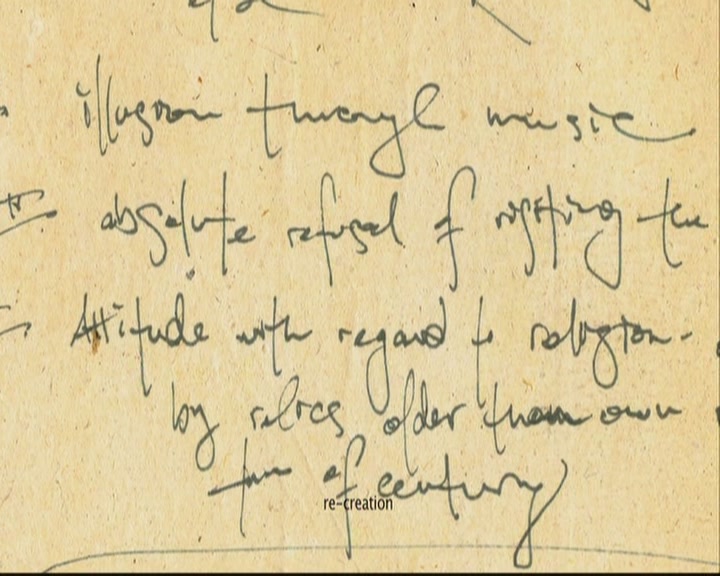 illusion through music
absolute refusal of the
Attitude with regard to religion.
by relics older than own
of century
re-creation